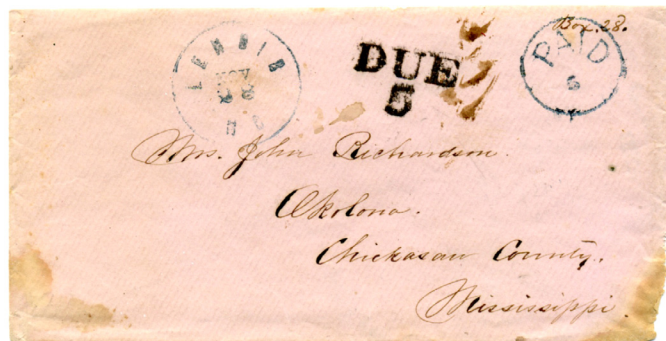 Box. 28.
LENOIR
NOV
28
N C
DUE
5
PAID
5
Mrs. John Richardson.
Okolona.
Chickasaw County.
Mississippi